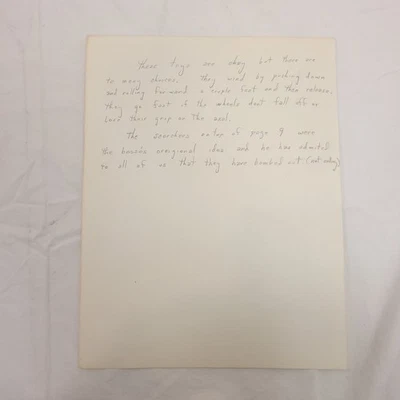 These toys are okey but there are
to many choices. They wind by pushing down
and rolling forward a couple feet and then release.
They go fast if the wheels dont fall off or
lose their grip on the axel.
The overshoes on top of page 9 were
the bosses origional idea and he has admited
to all of us that they have bombed out (not selling)